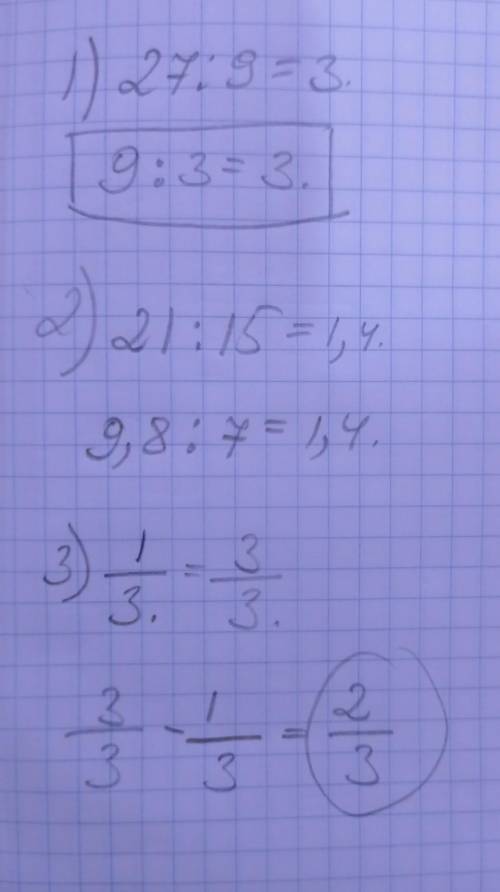 1) 27:9=3.
9:3=3.
2) 21:15=1,4.
9,8:7=1,4.
3) 1/3. = 3/3.
3/3 - 1/3 = 2/3